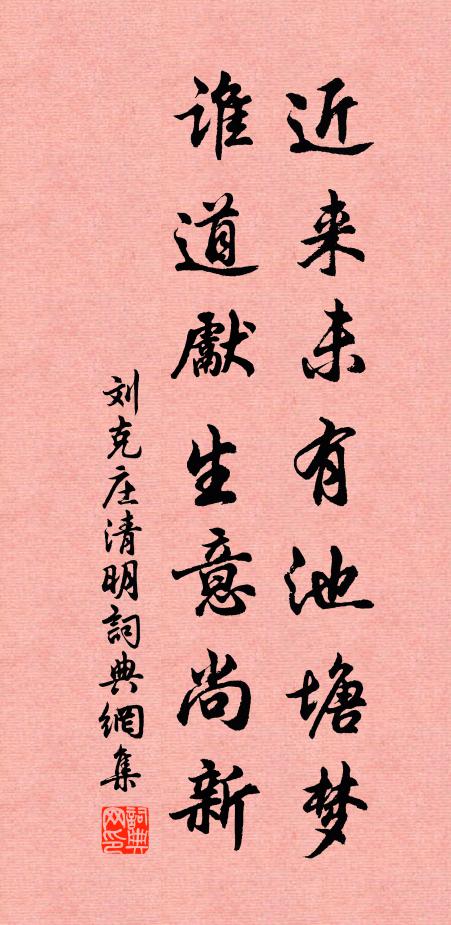 近来未有池塘梦
谁道獻生意尚新
刘克庄清明詞典網集
詞典网印